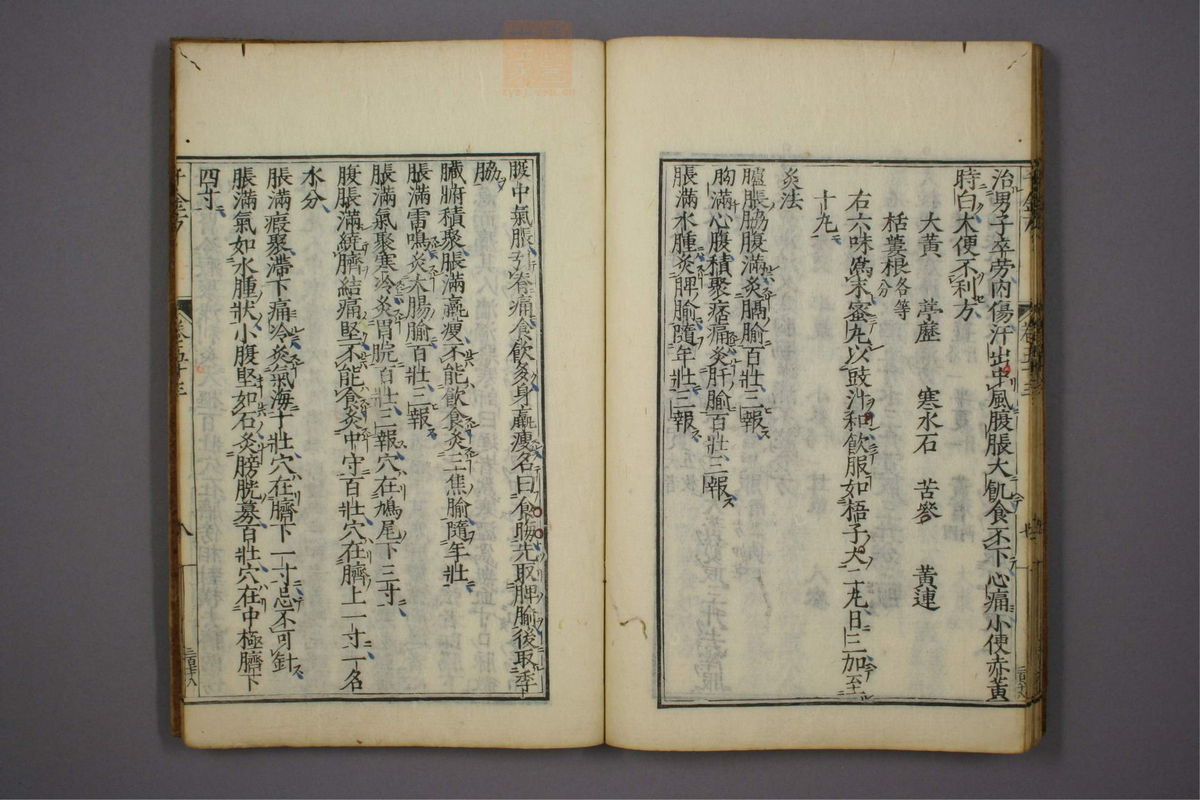 治男子卒勞內傷汗出中風腹脹大飢食不下心痛小便赤黃
時白大便不利方
大黃 葶藶 寒水石 苦參 黃連
栝蔞根各等分
右六味爲末蜜丸以豉汁和飲服如梧子大一十丸日三加至
十丸
灸法
臚脹脇腹滿灸膈腧百壯三報
胸滿心腹積聚痞痛灸肝腧百壯三報
脹滿水腫灸脾腧隨年壯三報
腹中氣脹引脊痛食飲多身羸瘦名曰食晦先取脾腧後取季
脇
臟腑積聚脹滿羸瘦不能飲食灸三焦腧隨年壯
脹滿雷鳴灸大腸腧百壯三報
脹滿氣聚寒冷灸胃脘百壯三報穴在鳩尾下三寸
腹脹滿繞臍結痛堅不能食灸中守百壯穴在臍上一寸一名
水分
脹滿瘕聚滯下痛冷灸氣海千壯穴在臍下一寸忌不可針
脹滿氣如水腫狀小腹堅如石灸膀胱募百壯穴在中極臍下
四寸
千金方
卷五十三
八